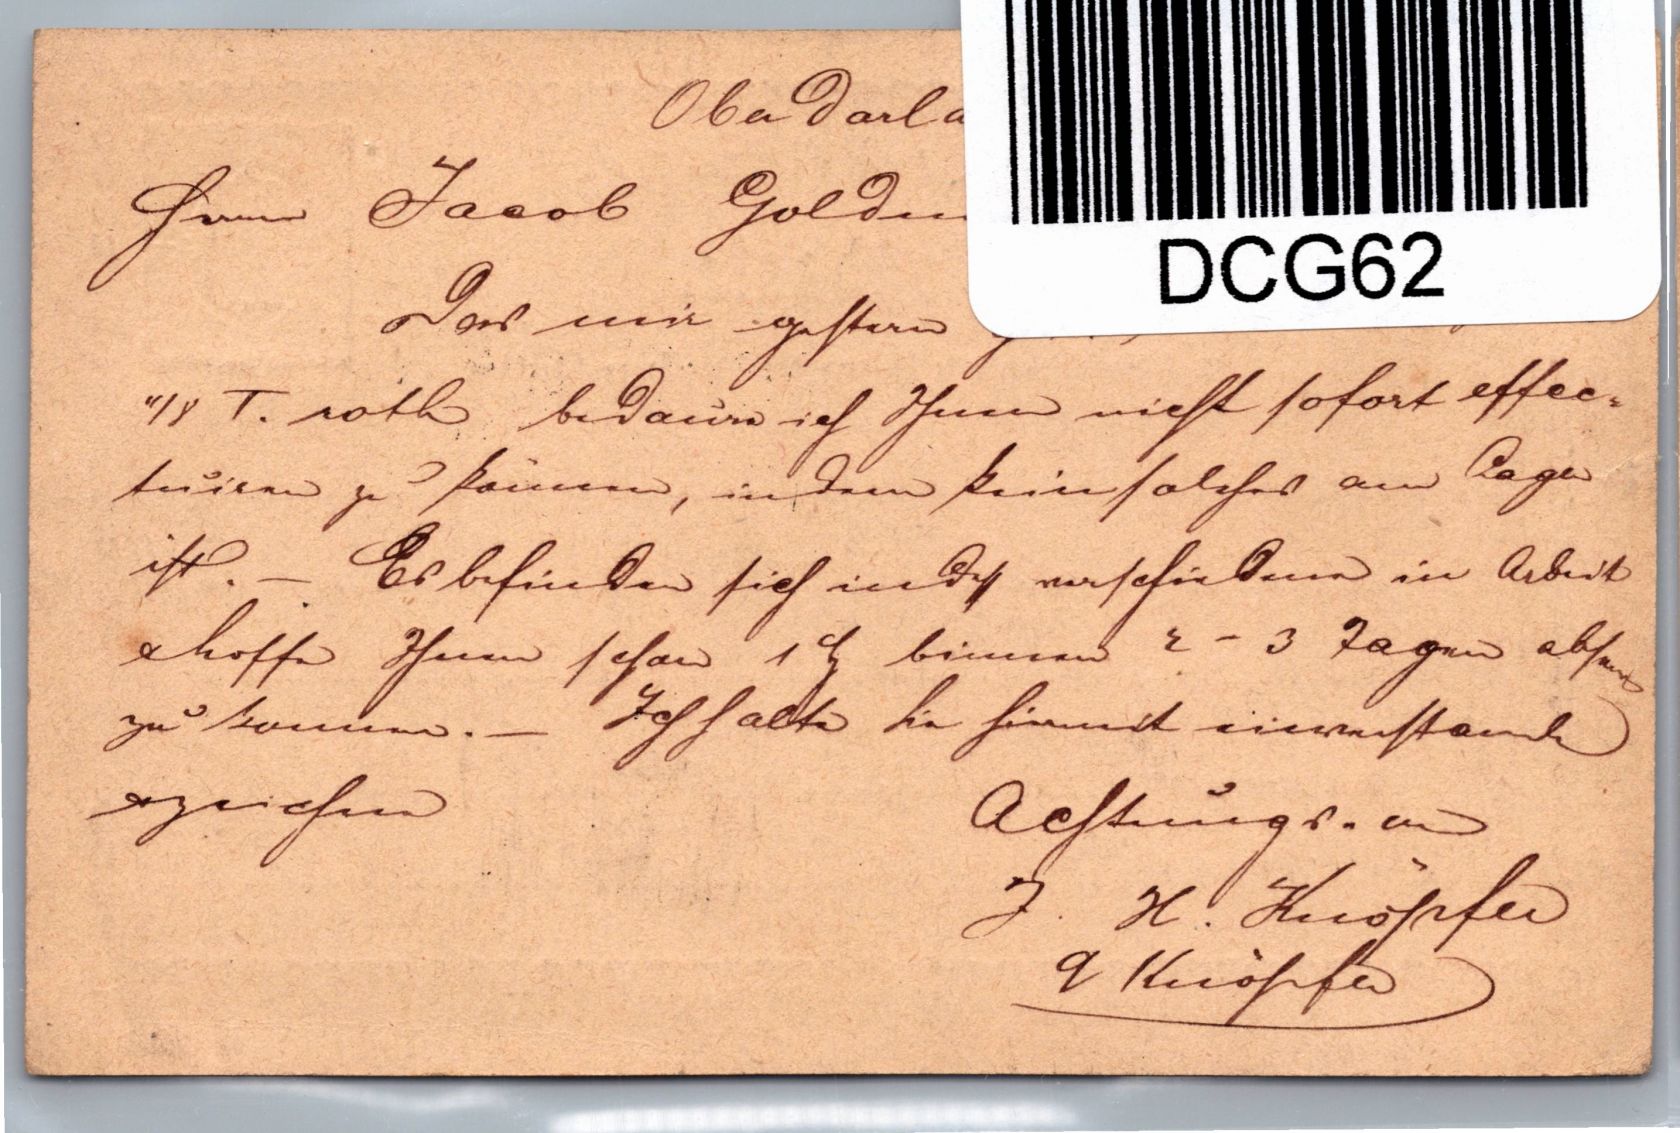 Oberdarla
DCG62
Herrn Jacob Goldm
Das mir gestern
4/8 T. roth bedaure ich Ihnen nicht sofort effec-
tuiren zu können, indem kein solches am Lager
ist. — Es befinden sich indeß verschiedene in Arbeit
& hoffe Ihnen schon 1 binnen 2 - 3 Tagen absen
zu können. — Ich halte Sie hiermit einverstanden
& zeichne
Achtungs.
J. H. Knöpfer
Knöpfer